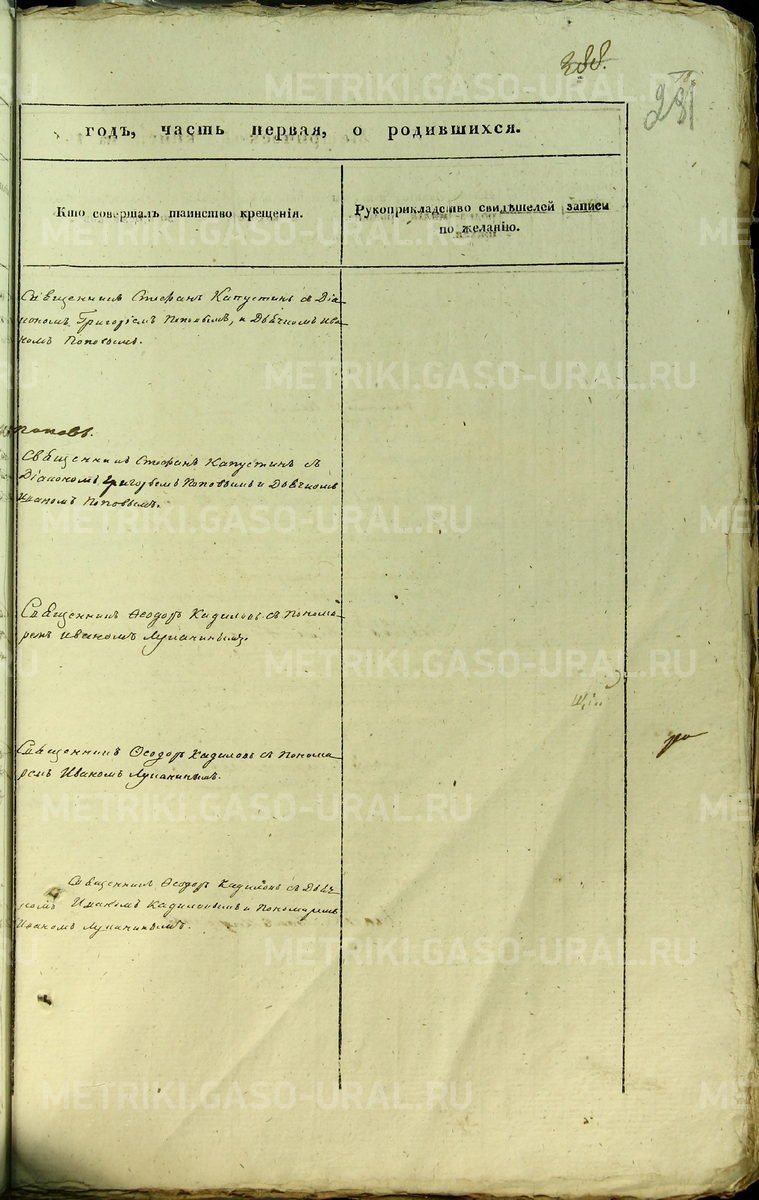 388.
231
годъ, часть первая, о родившихся.
Кто совершалъ таинство крещенія.
Рукоприкладство свидѣтелей записи
по желанію.
Священникъ Стефанъ Капустинъ съ Діа-
кономъ Григоріемъ Поповымъ, и Дьячкомъ Ива-
номъ Поповымъ.
поповъ.
Священникъ Стефанъ Капустинъ съ
Діакономъ Григорьемъ Поповымъ и Дьячкомъ
Иваномъ Поповымъ.
Священникъ Ѳеодоръ Кадиловъ съ Понома-
ремъ Иваномъ Лупанинымъ.
Священникъ Ѳеодоръ Кадиловъ съ Понома-
ремъ Иваномъ Лупанинымъ.
Священникъ Ѳеодоръ Кадиловъ съ Дьяч-
комъ Кадиловымъ и Пономаремъ
Иваномъ Лупанинымъ.
METRIKI.GASO-URAL.RU